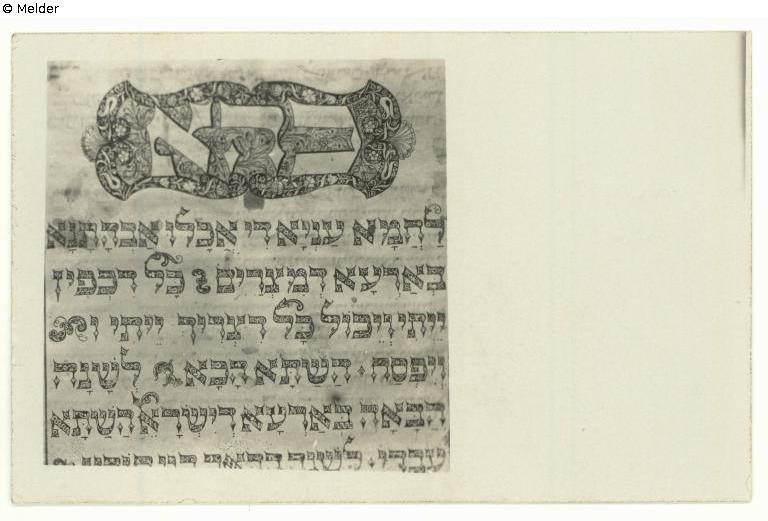 © Melder
הא
לַחְמָא עניא די אכלו אבהתנא
בארעא דמצרים כל דכפין
ייתי וייכול כל דצריך ייתי ו
ויפסח השתא הכא לשנה
הבאה בארעא דישראל השתא
עבדי לשנה הבאה